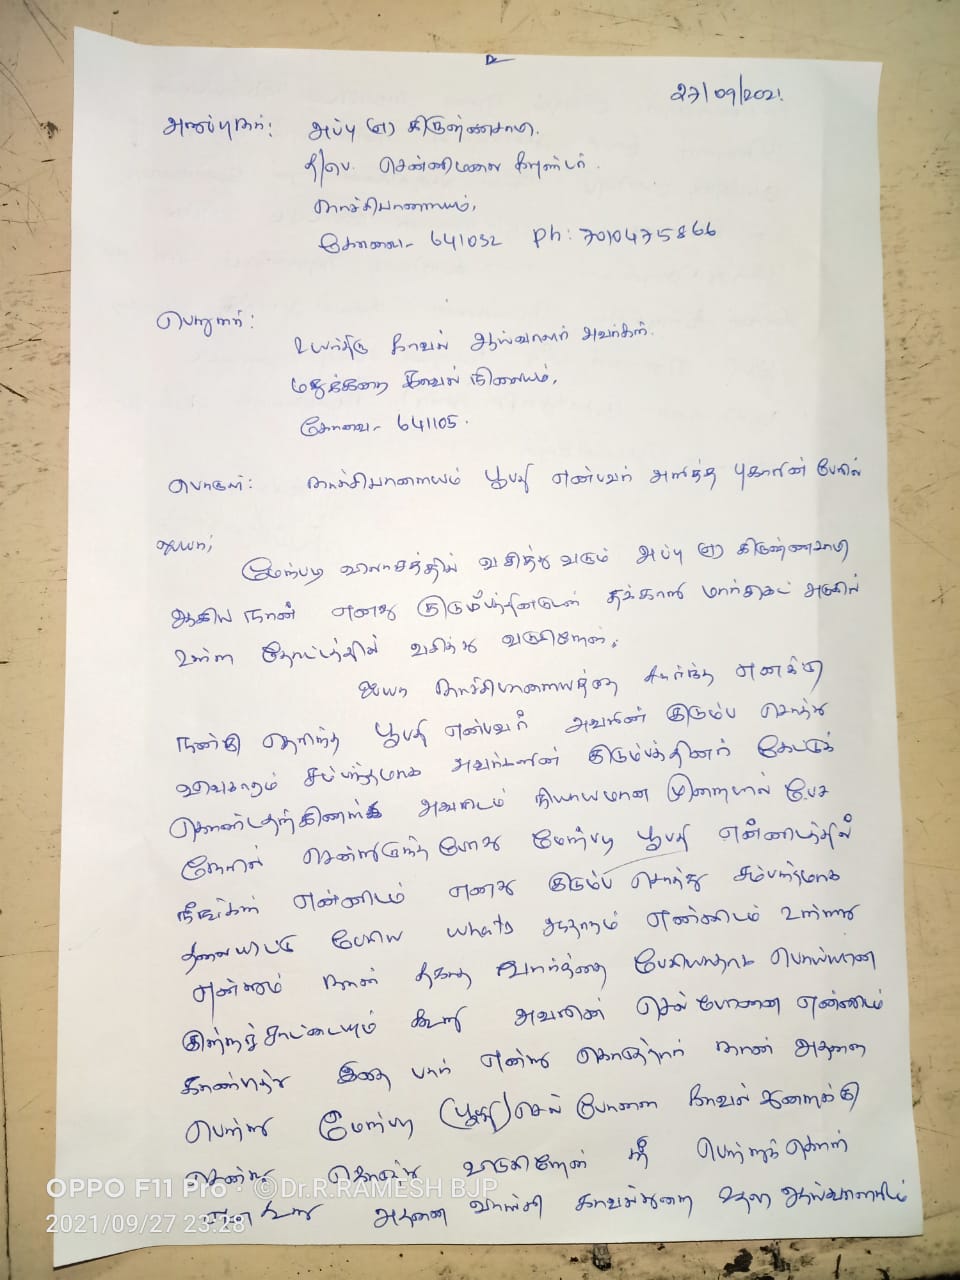 27/09/2021.
அனுப்புநர்: அப்பு (எ) கிருஷ்ணசாமி.
த/பெ. சென்னிமலை கவுண்டர்.
நாச்சிபாளையம்,
கோவை- 641032 Ph: 7010475866
பெறுநர்:
உயர்திரு காவல் ஆய்வாளர் அவர்கள்.
மதுக்கரை காவல் நிலையம்,
கோவை- 641105.
பொருள்: நாச்சிபாளையம் பூபதி என்பவர் அளித்த புகாரின் பேரில்
ஐயா,
மேற்படி விலாசத்தில் வசித்து வரும் அப்பு (எ) கிருஷ்ணசாமி
ஆகிய நான் எனது குடும்பத்தினருடன் தக்காளி மார்கெட் அருகில்
உள்ள தோட்டத்தில் வசித்து வருகிறேன்.
ஐயா நாச்சிபாளையத்தை சேர்ந்த எனக்கு
நன்கு தெரிந்த பூபதி என்பவர் அவரின் குடும்ப சொத்து
விவகாரம் சம்பந்தமாக அவர்களின் குடும்பத்தினர் கேட்டுக்
கொண்டதற்கிணங்க அவரிடம் நியாயமான முறையில் பேச
நேரில் சென்றிருந்த போது மேற்படி பூபதி என்னிடத்தில்
நீங்கள் என்னிடம் எனது குடும்ப சொத்து சம்பந்தமாக
தலையிட்டு பேசிய ஆதாரம் என்னிடம் உள்ளது
என்றும் நான் தகாத வார்த்தை பேசியதாக பொய்யான
குற்றச்சாட்டையும் கூறி அவரின் செல் போனை என்னிடம்
காண்பித்து இதை பார் என்று கொடுத்தார் நான் அதனை
பெற்று மேற்படி (பூபதி) செல் போனை காவல் துறைக்கு
சென்று கொடுத்து விடுகிறேன் நீ பெற்றுக்கொள்
என கூறி அதனை வாங்கி காவல்துறை உதவி ஆய்வாளரிடம்
OPPO F11 Pro · ©Dr.R.RAMESH BJP
2021/09/27 23:28